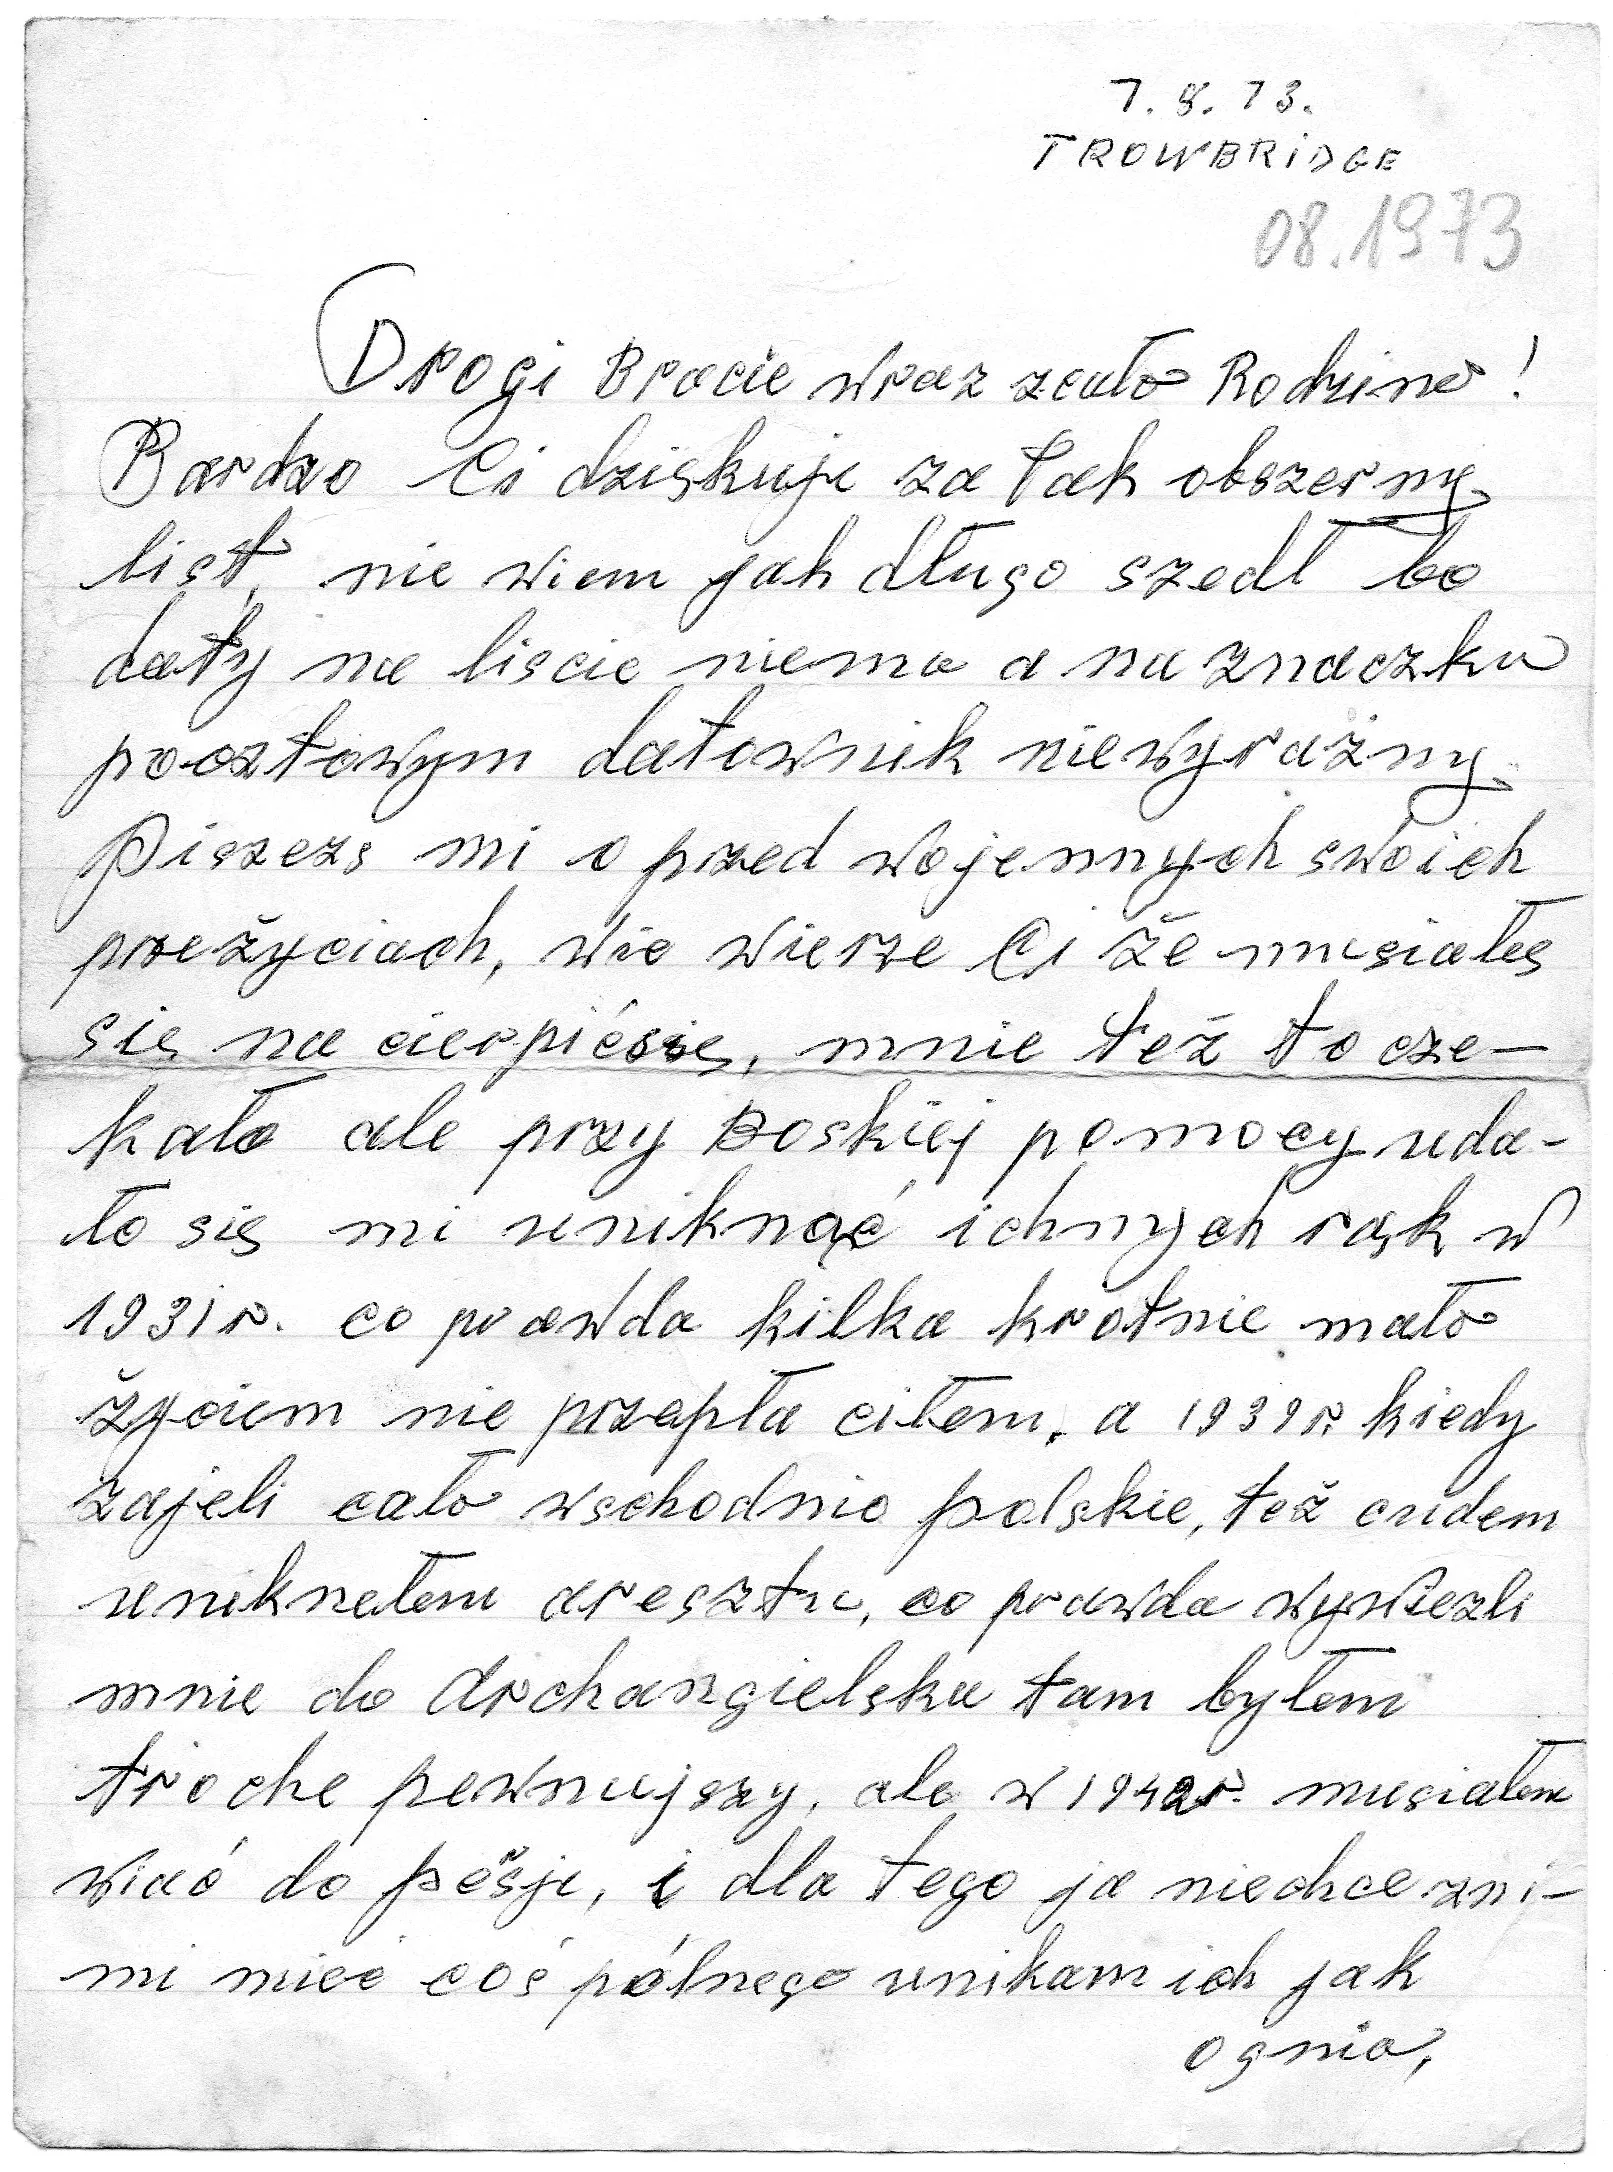 7.8.73.
TROWBRIDGE
08.1973
Drogi Bracie wraz zcało Rodzino!
Bardzo Ci dziękuje za tak obszerny
list, nie wiem jak długo szedł bo
daty na liscie niema a na znaczku
pocztowym datownik niewyrażny.
Piszezs mi o przed wojennych swoich
przeżyciach, wie wierze Ci że musiałeś
się na cierpićsię, mnie też to cze-
kało ale przy Boskiej pomocy uda-
ło się mi uniknąć ichnych rąk w
1931r. co prawda kilka krotnie mało
życiem nie przepła ciłem, a 1939r. kiedy
zajeli cało wschodnio polskie, też cudem
uniknełem aresztu, co prawda wywiezli
mnie do Archangielska tam byłem
troche pewnujszy, ale w 1942r. musiałem
wiać do pešji, i dla tego ja niechce zni-
mi mieć coś pólnego unikam ich jak
ognia,